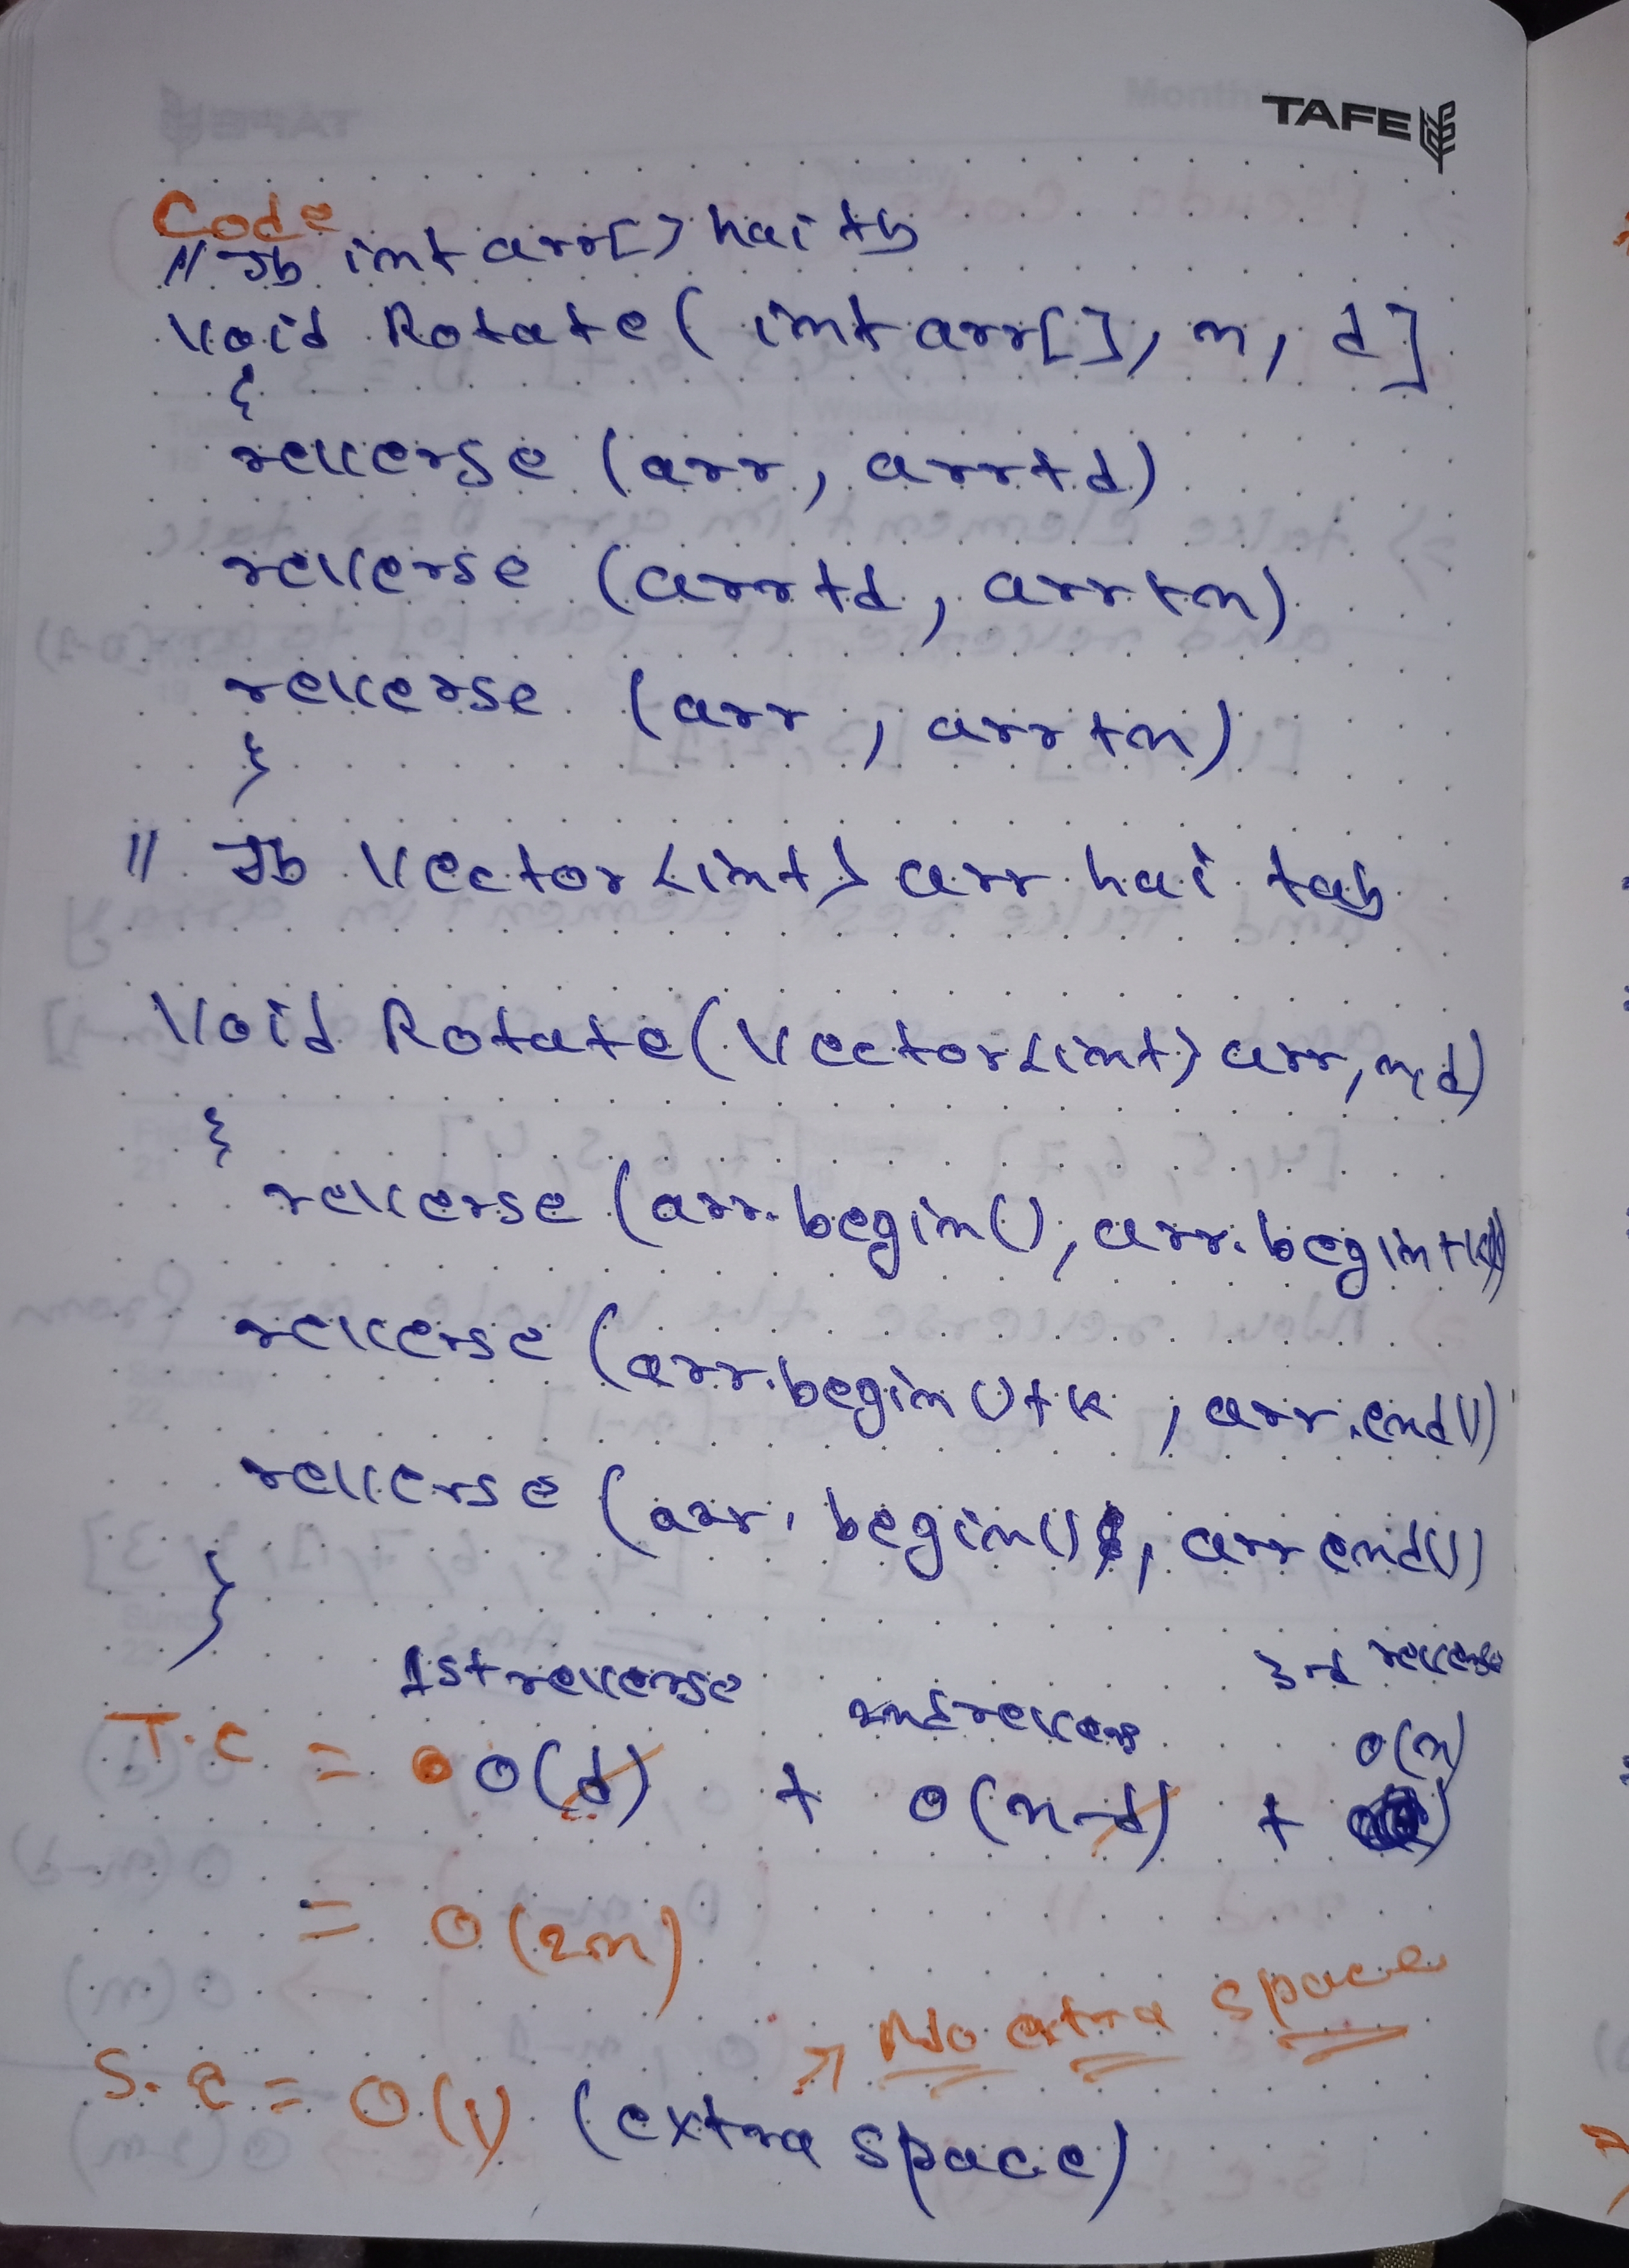 TAFE
Code
// Jb int arr[] hai tb
Void Rotate ( int arr[], n, d]
{
reverse (arr, arr+d)
reverse (arr+d, arr+n)
reverse (arr, arr+n)
}
// Jb Vector<int> arr hai tab
Void Rotate (Vector<int> arr, n, d)
{
reverse (arr.begin(), arr.begin+k)
reverse (arr.begin()+k, arr.end())
reverse (arr.begin(), arr end())
}
1st reverse 2nd reverse 3rd reverse
T.C = O(d) + O(n-d) + O(n)
= O(2n)
→ No extra space
S.C = O(1) (extra space)